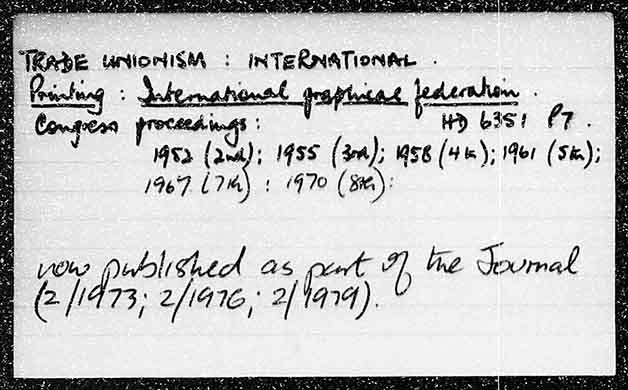 TRADE UNIONISM : INTERNATIONAL .
Printing : International graphical federation .
Congress proceedings : HD 6351 P7 .
1952 (2nd); 1955 (3rd); 1958 (4th); 1961 (5th);
1967 (7th) ; 1970 (8th):
now published as part of the Journal
(2/1973; 2/1976; 2/1979).